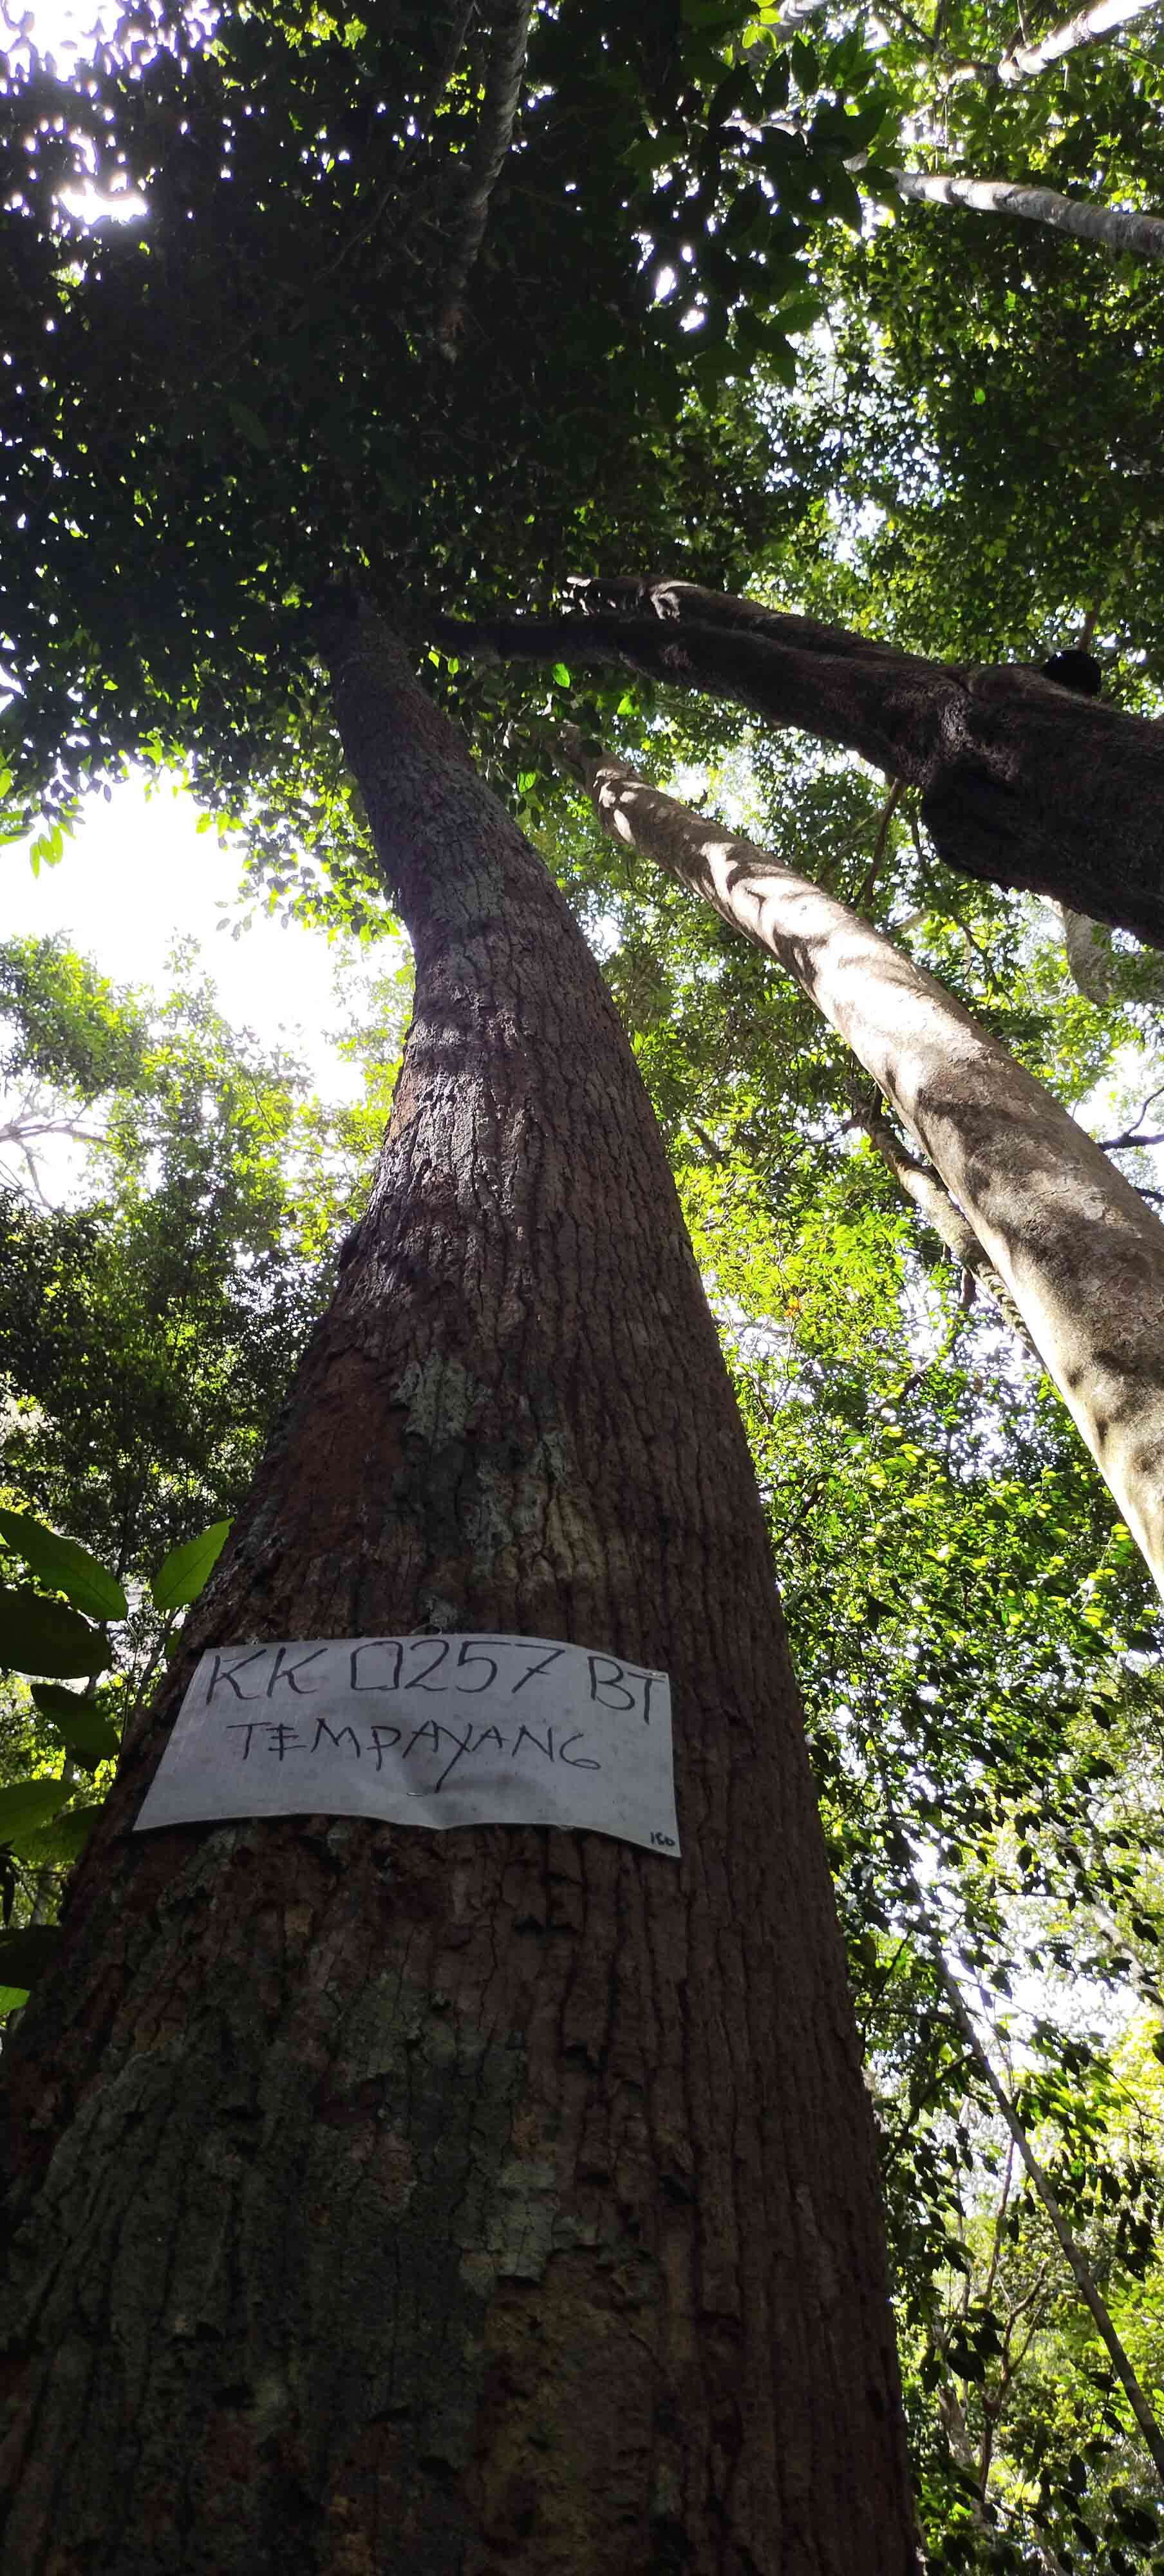 KK 0257 BT
TEMPAYANG
150